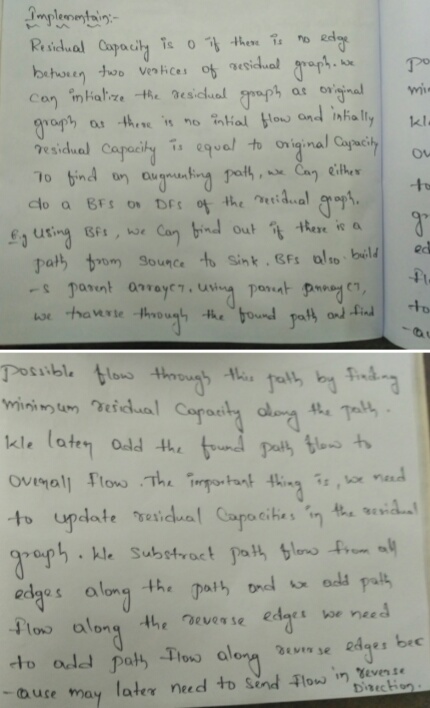 Implementain:-
Residual Capacity is 0 if there is no edge
between two vertices of residual graph. we
can intialize the residual graph as original
graph as there is no intial flow and intially
residual Capacity is equal to original Capacity
To find an augmenting path, we can either
do a BFS or DFS of the residual graph.
E.g Using BFS, we can find out if there is a
path from source to sink. BFS also build
-s parent array[]. using parent array[],
we traverse through the found path and find
possible flow through this path by finding
minimum residual Capacity along the path.
We later add the found path flow to
overall flow. The important thing is, we need
to update residual Capacities in the residual
graph. We Substract path flow from all
edges along the path and we add path
flow along the reverse edges we need
to add path flow along reverse edges bec
-ause may later need to send flow in reverse
Direction.